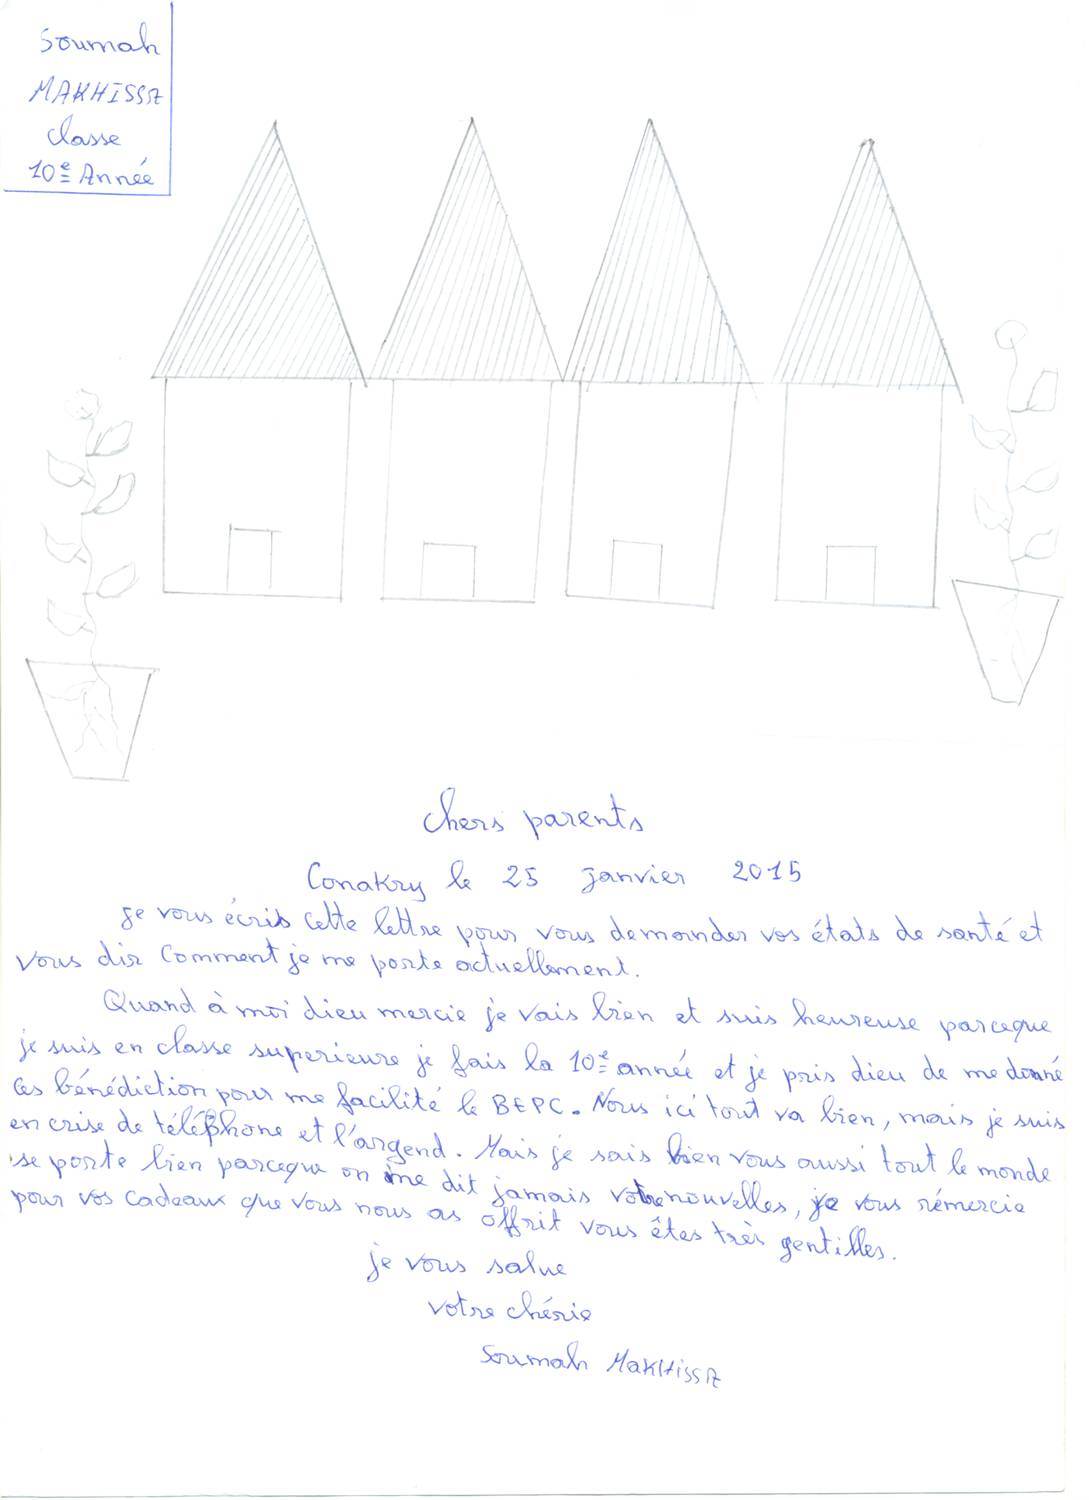 Soumah
MAKHISSA
classe
10e Année
chers parents
Conakry le 25 janvier 2015
je vous écris cette lettre pour vous demander vos états de santé et
vous dir comment je me porte actuellement.
Quand à moi dieu mercie je vais bien et suis heureuse parceque
je suis en classe superieure je fais la 10e année et je pris dieu de me donné
ces bénédiction pour me facilité le BEPC. Nous ici tout va bien, mais je suis
en crise de téléphone et l'argend. Mais je sais bien vous aussi tout le monde
se porte bien parceque on me dit jamais votre nouvelles, je vous rémercie
pour vos cadeaux que vous nous as offrit vous êtes très gentilles.
je vous salue
votre chérie
Soumah MaKHissA